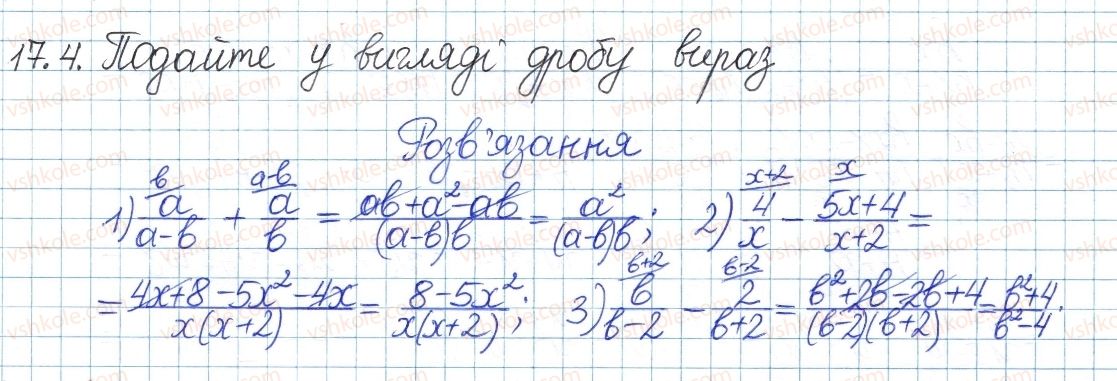 17.4. Подайте у вигляді дробу вираз
Розв'язання
1) a/(a-b) + a/b = (ab+a²-ab)/((a-b)b) = a²/((a-b)b); 2) 4/x - (5x+4)/(x+2) =
= (4x+8-5x²-4x)/(x(x+2)) = (8-5x²)/(x(x+2)); 3) b/(b-2) - 2/(b+2) = (b²+2b-2b+4)/((b-2)(b+2)) = (b²+4)/(b²-4).